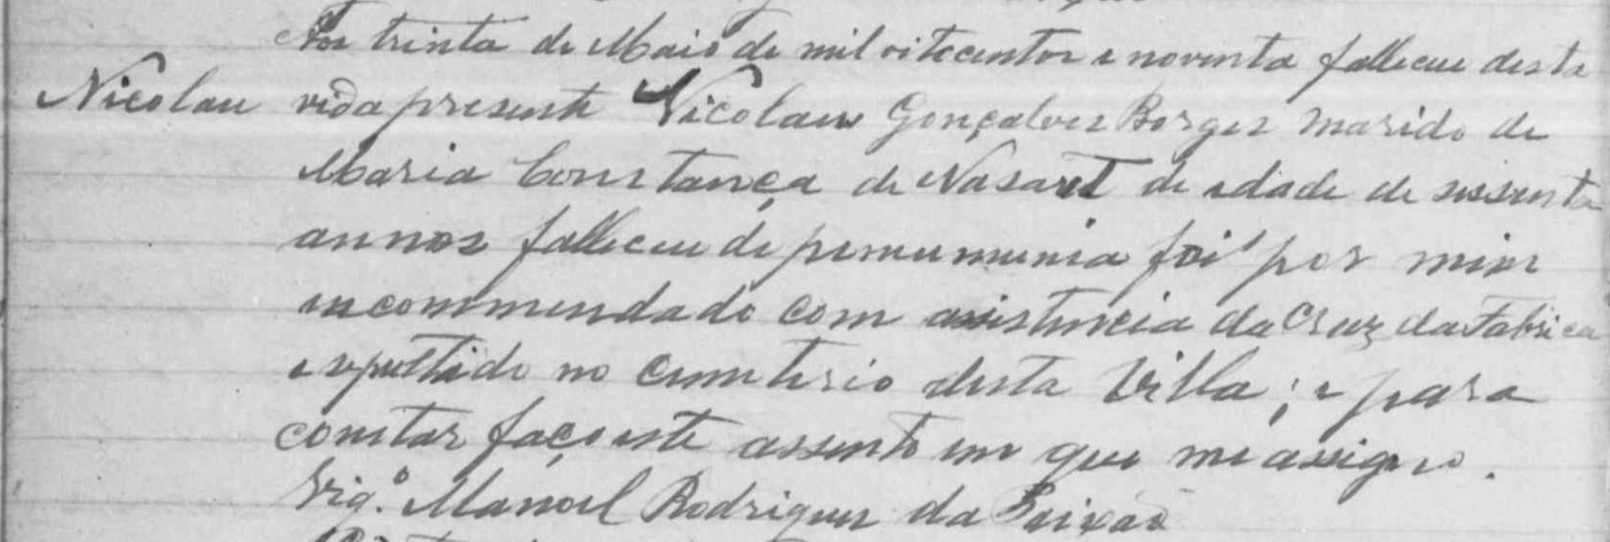 Aos trinta de Maio de mil oitocentos e noventa falleceu desta
Nicolau vida presente Nicolau Gonçalves Borges marido de
Maria Constança de Nasaret de edade de sessenta
annos falleceu de pneumunia foi por mim
encommendado com assistencia da Cruz da Fabrica
e sepultado no cemiterio desta Villa; e para
constar faço este assento em que me assigno.
Vig.º Manoel Rodrigues da Paixão